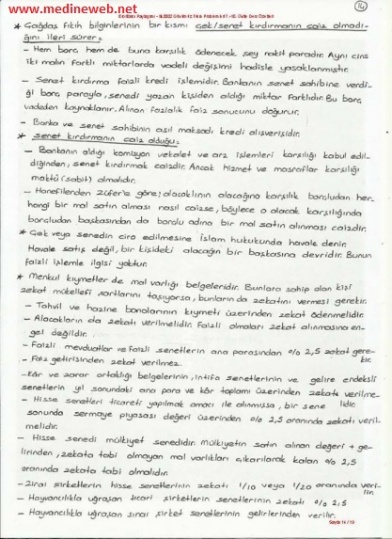 www.medineweb.net
14
* Çağdaş fıkıh bilginlerinin bir kısmı çek/senet kırdırmanın caiz olmadı-
ğını ileri sürer:
- Hem borç hem de buna karşılık ödenecek şey nakit paradır. Aynı cins
iki malın farklı miktarlarda vadeli değişimi hadisle yasaklanmıştır.
- Senet kırdırma faizli kredi işlemidir. Bankanın senet sahibine verdi-
ği borç parayla, senedi yazan kişiden aldığı miktar farklıdır. Bu borç
vadeden kaynaklanır. Alınan fazlalık faiz sonucunu doğurur.
- Banka ve senet sahibinin asıl maksadı kredi alışverişidir.
* Senet kırdırmanın caiz olduğu:
- Bankanın aldığı komisyon vekalet ve arz işlemleri karşılığı kabul edil-
diğinden, senet kırdırmak caizdir. Ancak hizmet ve masraflar karşılığı
maktû (sabit) olmalıdır.
- Hanefilerden Züfer'e göre; alacaklının alacağına karşılık borçludan her-
hangi bir mal satın alması nasıl caizse, böylece o alacak karşılığında
borçludan başkasından da borçlu adına bir mal satın alınması caizdir.
* Çek veya senedin ciro edilmesine İslam hukukunda havale denir.
Havale satış değil, bir kişideki alacağın bir başkasına devridir. Bunun
faizli işlemle ilgisi yoktur.
* Menkul kıymetler de mal varlığı belgeleridir. Bunlara sahip olan kişi
zekat mükellefi şartlarını taşıyorsa, bunların da zekatını vermesi gerekir.
- Tahvil ve hazine bonolarının kıymeti üzerinden zekat ödenmelidir.
- Alacakların da zekatı verilmelidir. Faizli olmaları zekat alınmasına en-
gel değildir.
- Faizli mevduatlar ve faizli senetlerin ana parasından % 2,5 zekat gere-
kir.
- Faiz getirisinden zekat verilmez.
- Kâr ve zarar ortaklığı belgelerinin, intifa senetlerinin ve gelire endeksli
senetlerin yıl sonundaki ana para ve kâr toplamı üzerinden zekatı verilme-
lidir.
- Hisse senetleri ticareti yapılmak amacı ile alınmışsa, bir sene
sonunda sermaye piyasası değeri üzerinden % 2,5 oranında zekatı veril-
melidir.
- Hisse senedi mülkiyet senedidir. Mülkiyetin satın alınan değeri + ge-
lirinden, zekata tabi olmayan mal varlıkları çıkarılarak kalanı % 2,5
oranında zekata tabi olmalıdır.
- Zirai şirketlerin hisse senetlerinin zekatı 1/10 veya 1/20 oranında veri-
lir.
- Hayvancılıkla uğraşan ticari şirketlerin senetlerinin zekatı % 2,5
- Hayvancılıkla uğraşan zirai şirket senetlerinin gelirlerinden verilir.